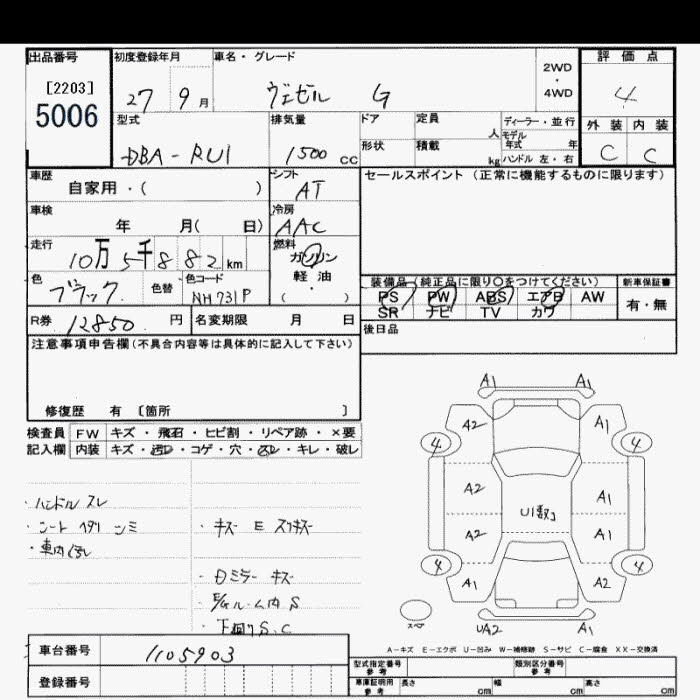 出品番号 初度登録年月 車名・グレード 2WD・4WD 評価点
[2203] 5006 27 9月 ヴェゼル G 4
型式 排気量 ドア 定員 人 ディーラー・並行 外装 内装
モデル年式 年
DBA-RU1 1500cc 形状 積載 kg ハンドル 左・右 C C
車歴 シフト セールスポイント(正常に機能するものに限ります)
自家用・( ) AT
車検 冷房
年 月( 日) AAC
走行 燃料
10万5千882km ガソリン
色 色替 色コード 軽油・ 装備品(純正品に限り○をつけてください) 新車保証書
ブラック NH731P ( ) PS PW ABS エアB AW 有・無
SR ナビ TV カワ
R券 12850円 名変期限 月 日 後日品
注意事項申告欄(不具合内容等は具体的に記入して下さい)
修復歴 有 [箇所 ]
検査員 FW キズ・飛石・ヒビ割・リペア跡・×要
記入欄 内装 キズ・汚れ・コゲ・穴・凹・キレ・破レ
A1 A1
A2 A1
4 4
A2 A1
U1数
A2 A1
4 4
A1 A2
UA2 A1
スペア
・ハンドル スレ
・シート ヘタリ シミ ・キズ E スリキズ
・車内
・Dミラー キズ
E/Gルーム内 S
・下廻り S.C
A-キズ E-エクボ U-凹み W-補修跡 S-サビ C-腐食 XX-交換済
車台番号 1105903
型式指定番号 参考 類別区分番号 参考
登録番号 車庫証明用 参考 長さ cm 幅 cm 高さ cm